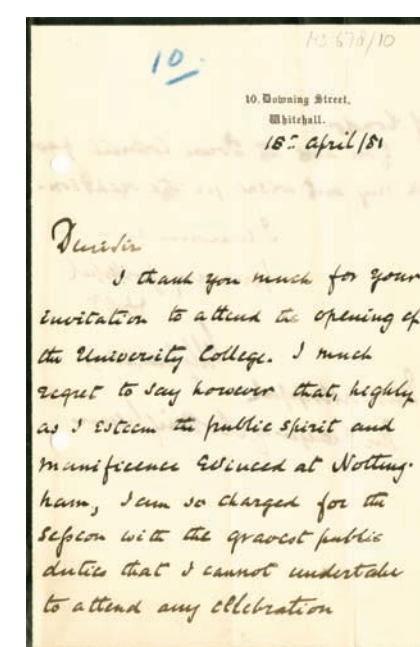 MS 678/10
10.
10. Downing Street,
Whitehall.
18th April/81
Dear Sir
I thank you much for your
invitation to attend the opening of
the University College. I much
regret to say however that, highly
as I esteem the public spirit and
munificence evinced at Notting-
ham, I am so charged for the
Session with the gravest public
duties that I cannot undertake
to attend any celebration